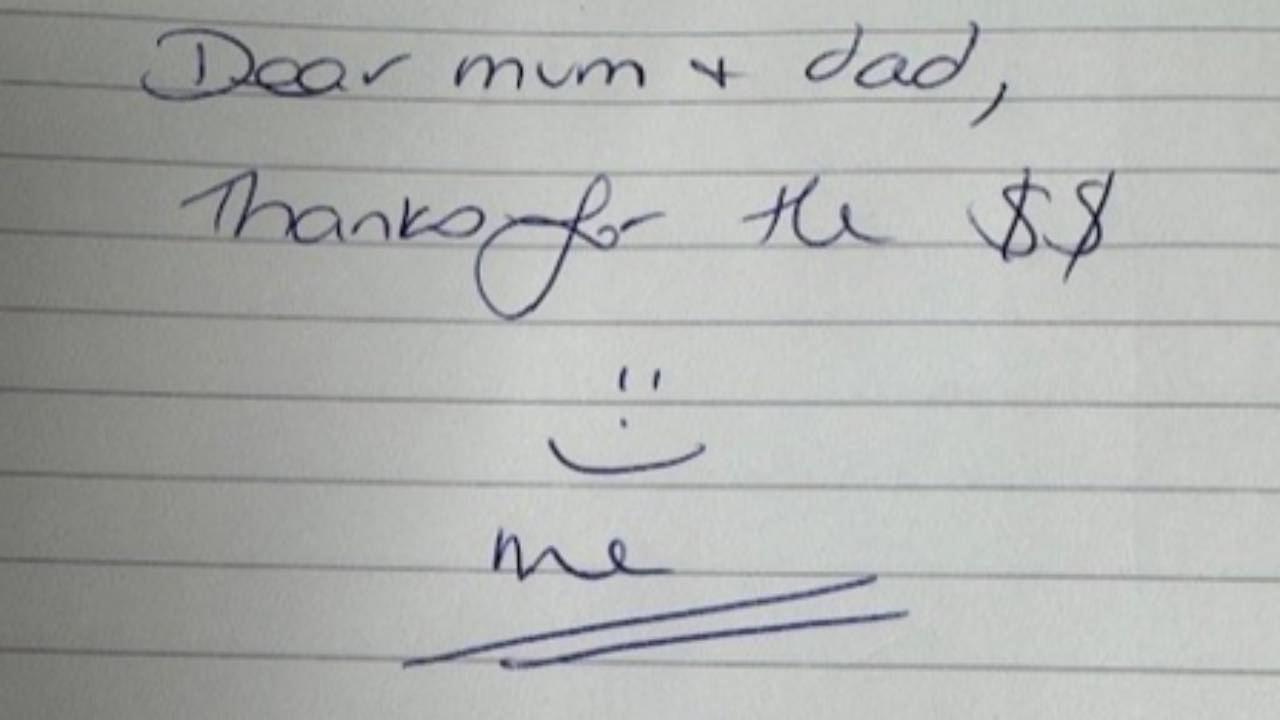 Dear mum + dad,
Thanks for the $$
me